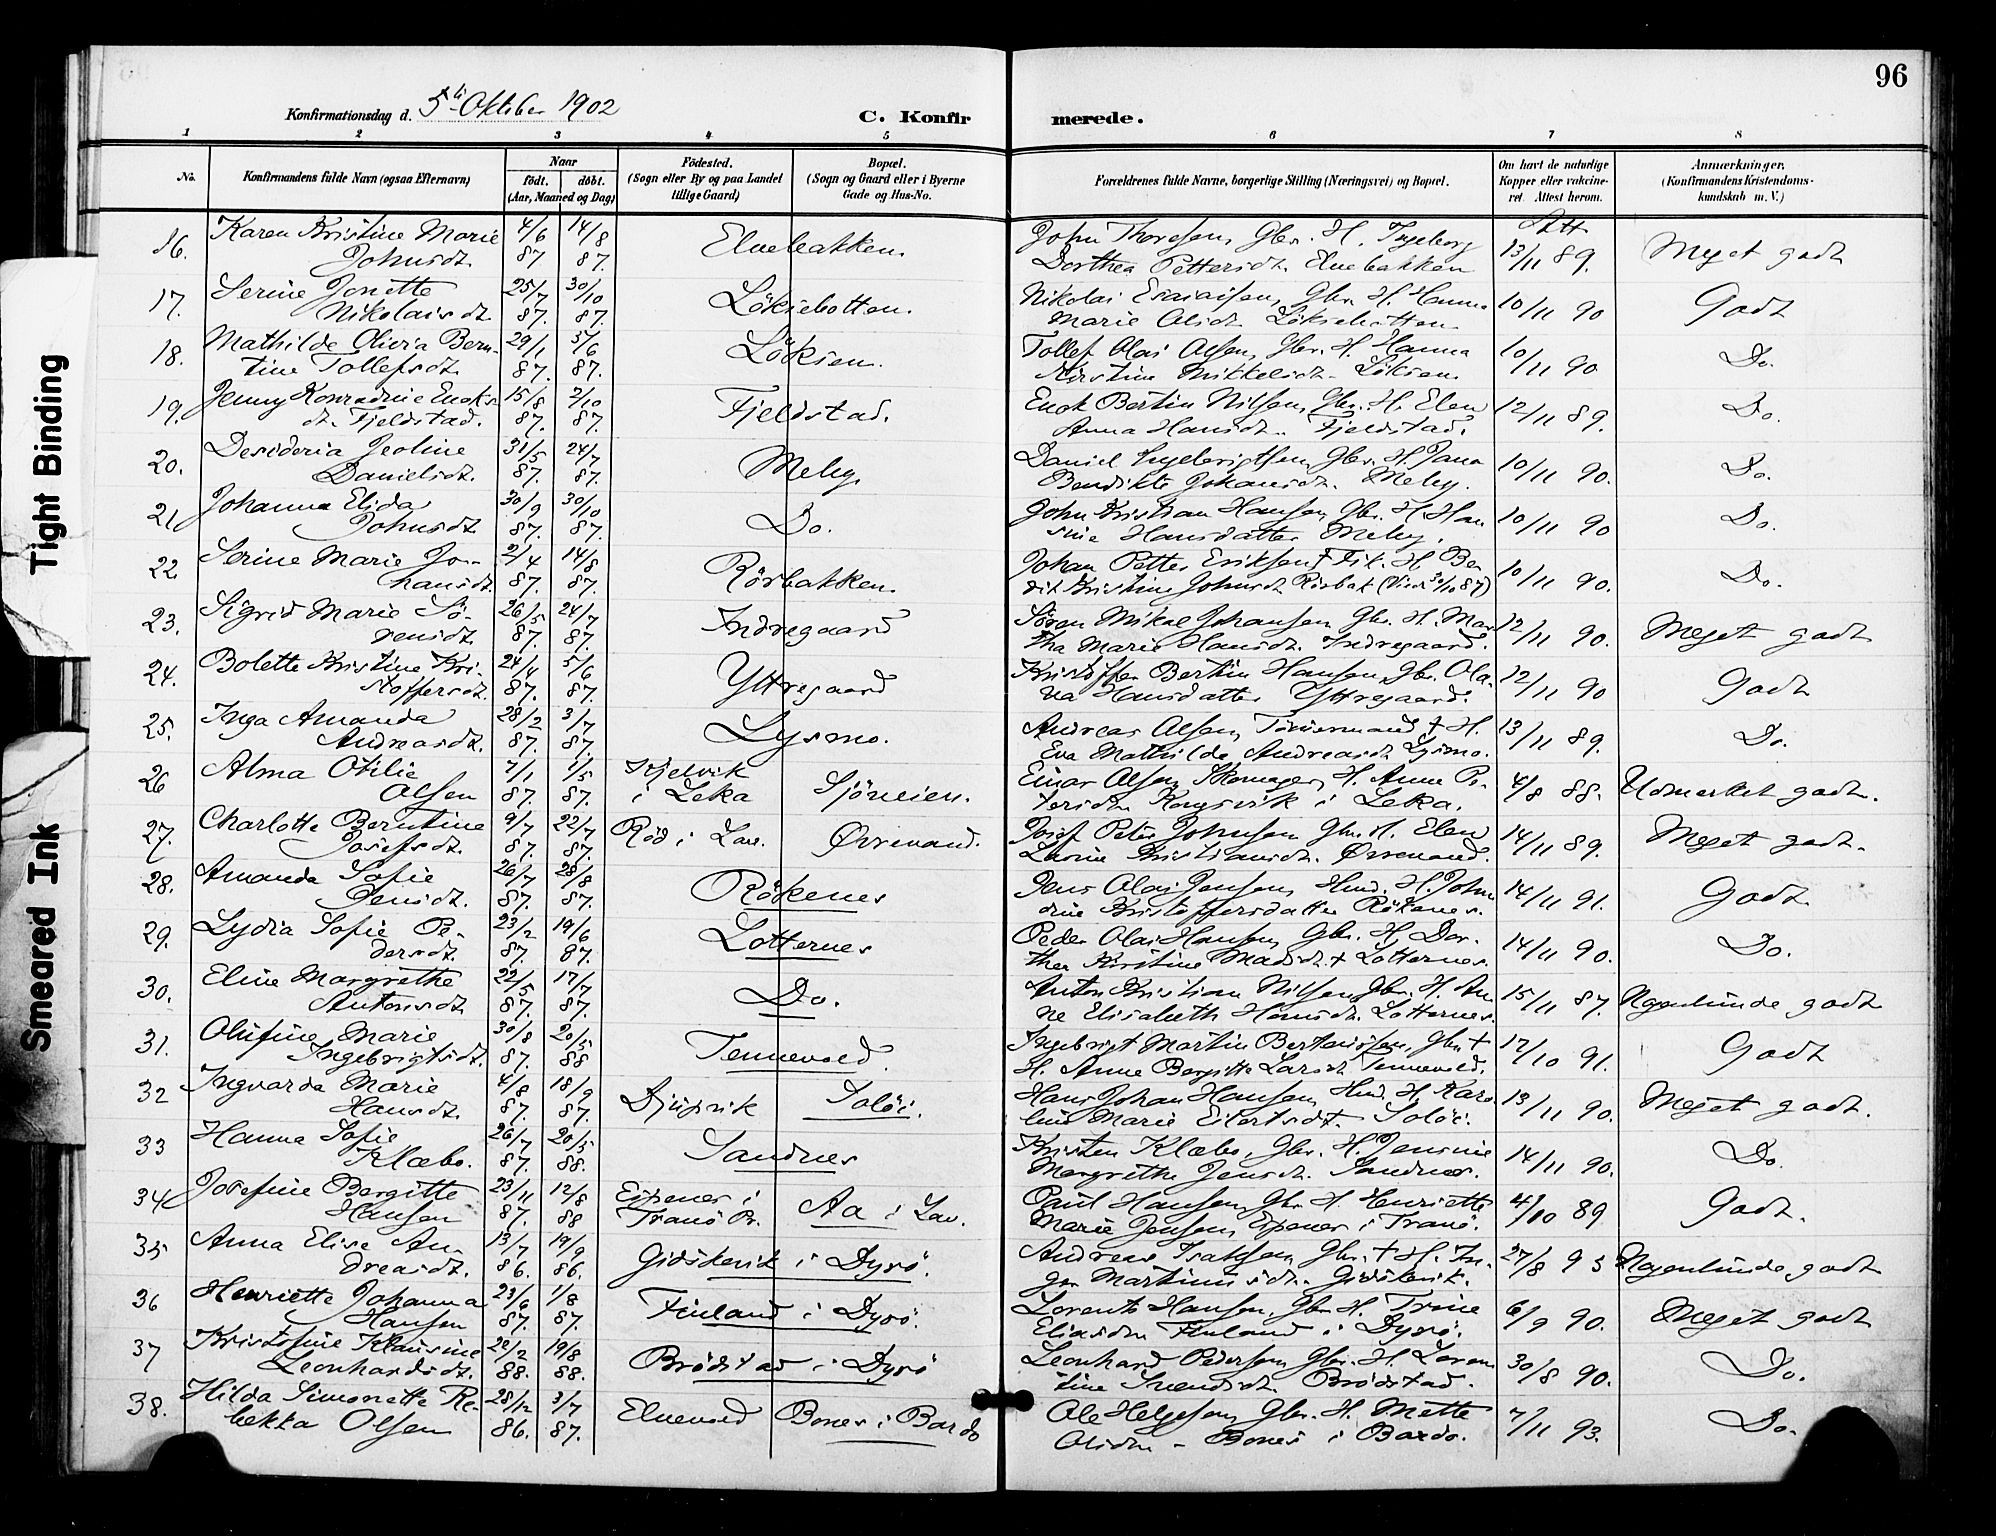 96
Konfirmationsdag d. 5te Oktober 1902
C. Konfirmerede.
1 2 3 4 5 6 7 8
No.
Konfirmandens fulde Navn (ogsaa Efternavn)
Naar
födt. döbt.
(Aar, Maaned og Dag)
Födested.
(Sogn eller By og paa Landet
tillige Gaard)
Bopæl.
(Sogn og Gaard eller i Byerne
Gade og Hus-No.
Forældrenes fulde Navne, borgerlige Stilling (Næringsvei) og Bopæl.
Om havt de naturlige
Kopper eller vakcine-
ret. Attest herom.
Anmærkninger.
(Konfirmandens Kristendoms-
kundskab m. V.)
Att
16. Karen Kristine Marie 4/6 14/8 Elvebakken. John Thoresen, Gbr. H. Ingeborg 13/11 89. Meget godt
Johnsdt. 87 87. Dorthea Pettersdt. Elvebakken
17. Serine Jonette 25/7 30/10 Löksebotten. Nikolai Esaiassen, Gbr. H. Hanna 10/11 90 Godt
Nikolaisdt. 87. 87. Marie Olsdt. Löksebotten
18. Mathilde Olivia Bern- 29/1 5/6 Löksen. Tollef Olai Olsen, Gbr. H. Hanna 10/11 90 Do.
tine Tollefsdt. 87. 87. Kirstine Mikkelsdt. Löksen.
19. Jenny Konradine Enoks- 15/8 2/10 Fjeldstad. Enok Bertin Nilsen, Gbr. H. Elen 12/11 89. Do.
dt. Fjeldstad. 87. 87. Anna Hansdt. Fjeldstad.
20. Desideria Jeoline 31/5 24/7 Meby. Daniel Ingebrigtsen, Gbr. H. Jana 10/11 90. Do.
Danielsdt. 87. 87. Bendikte Johansdt. Meby.
21 Johanna Elida 30/9 30/10 Do. John Kristian Hansen, Gbr. H. Han- 10/11 90 Do.
Johnsdt. 87. 87. sine Hansdatter Meby.
22 Serine Marie Jo- 2/4 14/8 Rörbakken. Johan Petter Eriksen † Fisk. H. Be- 10/11 90. Do.
hansdt. 87. 87. rit Kristine Johnsdt. Rörbak (Viede 30/10 87)
23. Sigrid Marie Sö- 26/5 24/7 Indregaard Sören Mikal Johansen, Gbr. H. Mar- 12/11 90. Meget godt
rensdt. 87. 87. tha Marie Hansdt. Indregaard.
24. Bolette Kristine Kri- 24/4 5/6 Yttregaard Kristoffer Bertin Hansen, Gbr. Ola- 12/11 90 Godt
stoffersdt. 87. 87. va Hansdatter Yttregaard.
25. Inga Amanda 28/2 3/7 Lysmo. Andreas Olsen, Tömmermand, † H. 13/11 89. Do.
Andreasdt. 87. 87. Eva Mathilde Andreasdt. Lysmo.
26 Alma Otilie 7/1 1/5 Kjelvik Sjöveien. Einar Olsen, Skomager, H. Anne Pe- 4/8 88. Udmerket godt.
Olsen 87. 87. i Leka tersdt. Kongsvik i Leka.
27. Charlotte Berntine 9/7 22/7 Röd i Lav. Övrevand. Josef Peter Johnsen Gbr. H. Elen 14/11 89. Meget godt.
Josefsdt. 87. 87. Lavine Kristiansdt. Övrevand.
28. Amanda Sofie 26/7 28/8 Rökenes Jens Olai Jensen, Hmd. H. John 14/11 91. Godt
Jensdt. 87. 87. dine Kristoffersdatter Rökenes.
29. Lydia Sofie Pe- 23/2 19/6 Lotternes Peder Olai Hansen, Gbr. H. Dor- 14/11 90. Do.
dersdt. 87. 87. thea Kristine Madsdt. † Lotternes.
30. Eline Margrethe 22/5 17/7 Do. Anton Kristian Nilsen, Gbr. H. An- 15/11 87. Nogenlunde godt
Antonsdt 87. 87. ne Elisabeth Hansdt. Lotternes.
31. Olufine Marie 30/8 20/5 Tennevold. Ingebrigt Martin Bertenssen, Gbr. † 12/10 91. Godt
Ingebrigtsdt. 87. 88 H. Anne Bergitte Larsdt. Tennevold.
32 Ingvarda Marie 4/8 18/9 Djupvik Solöi. Hans Johan Hansen, Hmd. H. Karo- 13/11 90. Meget godt.
Hansdt. 87. 87. line Marie Eilertsdt. Solöi.
33 Hanna Sofie 26/7 20/5 Sandnes Kristen Klæbo, Gbr. H. Jensine 14/11 90. Do.
Klæbo. 87. 88. Margrethe Jensdt. Sandnes.
34 Josefine Bergitte 23/11 12/8 Espenes i Aa i Lav. Paul Hansen, Gbr. H. Henriette 4/10 89 Godt.
Hansen 87. 88 Tranö Pr. Marie Jensen, Espenes i Tranö.
35 Anna Elise An- 13/7 19/9 Gidskevik i Dyrö. Andreas Isaksen, Gbr. † H. In- 27/8 93 Nogenlunde godt
dreasdt. 86. 86. ger Martinusdt. Gidskevik.
36 Henriette Johanna 23/6 1/8 Finland i Dyrö. Lorents Hansen, Gbr. H. Trine 6/9 90. Meget godt
Hansen 87. 87. Eliasdtr Finland i Dyrö.
37 Kristofine Klausine 22/2 19/8 Brödstad i Dyrö Leonhard Pedersen, Gbr. H. Loren- 30/8 90. Do.
Leonhardsdt. 88. 88. tine Svendsdt. Brödstad.
38. Hilda Simonette Re- 28/12 3/7 Elvevold Bones i Bardo Ole Helgesen, Gbr. H. Mette 7/11 93. Do.
bekka Olsen 86. 87. Olsdtr - Bones i Bardo.
Tight Binding
Smeared Ink